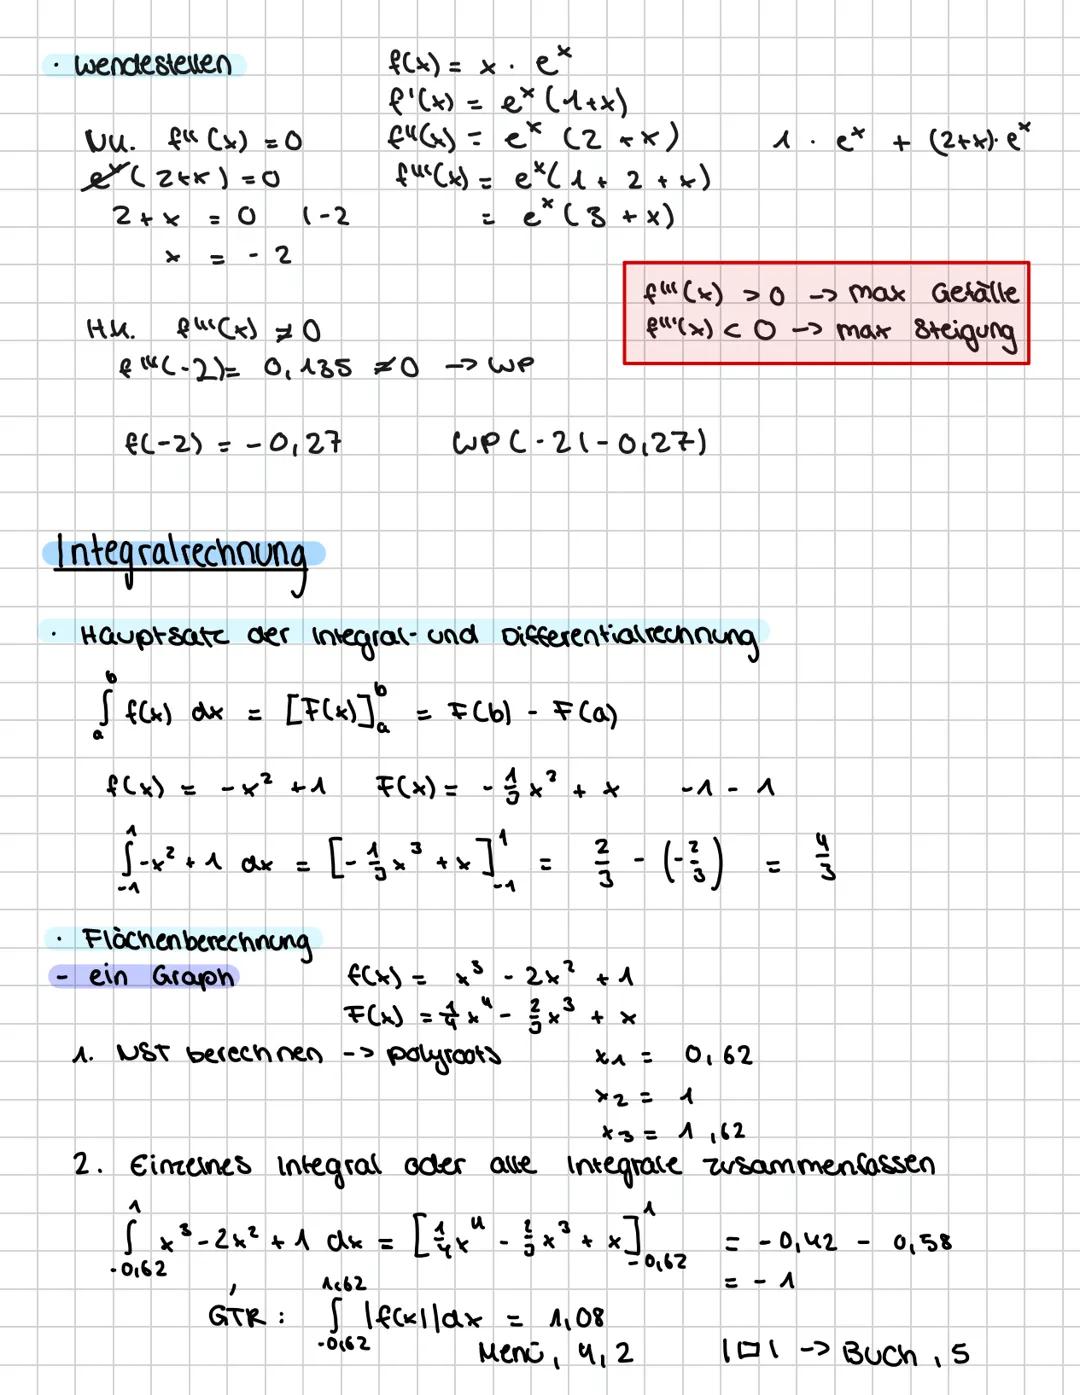 · Wendestellen
f(x) = x · eˣ
f'(x) = eˣ (1+x)
NH. f''(x) = 0
f''(x) = eˣ (2+x)
1 · eˣ + (2+x)· eˣ
eˣ(2+x) = 0
f'''(x) = eˣ(1 + 2 + x)
2 + x = 0 |-2
= eˣ (3 + x)
x = - 2
f'''(x) > 0 -> max Gefälle
f'''(x) < 0 -> max Steigung
HH. f'''(x) ≠ 0
f'''(-2) = 0,135 ≠ 0 -> WP
f(-2) = -0,27 WP(-2|-0,27)
Integralrechnung
· Hauptsatz der Integral- und Differentialrechnung
∫ₐᵇ f(x) dx = [F(x)]ₐᵇ = F(b) - F(a)
f(x) = -x² +1 F(x) = - 1/3 x² + x -1 - 1
∫₋₁¹ -x² + 1 dx = [- 1/3 x³ + x]₋₁¹ = 2/3 - (-2/3) = 4/3
· Flächenberechnung
- ein Graph
f(x) = x³ - 2x² + 1
F(x) = 1/4 x⁴ - 2/3 x³ + x
1. NST berechnen -> polyroots
x₁ = 0,62
x₂ = 1
x₃ = 1,62
2. Einzelnes Integral oder alle Integrale zusammenfassen
∫₋₀,₆₂¹ x³ - 2x² + 1 dx = [1/4 x⁴ - 2/3 x³ + x]₋₀,₆₂¹ = -0,42 - 0,58
= - 1
GTR: ∫₋₀,₆₂¹,⁶² |f(x)|dx = 1,08
Menü, 4, 2 |□| -> Buch, 5